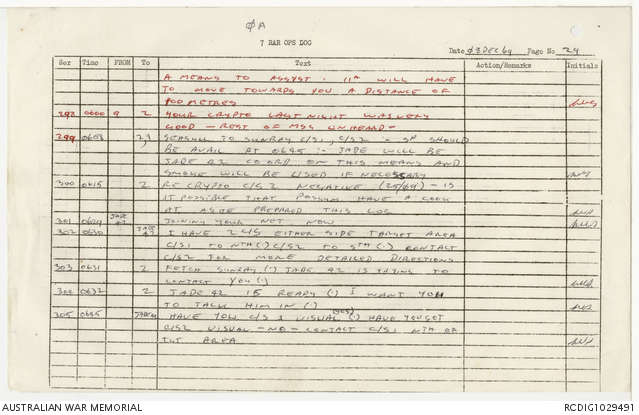 ØA
7 RAR OPS LOG
Date 03 DEC 69 Page No 29
Ser Time FROM To Text Action/Remarks Initials
A MEANS TO ASSIST. 11A WILL HAVE
TO MOVE TOWARDS YOU A DISTANCE OF
400 METRES
298 0600 9 2 YOUR CRYPTO LAST NIGHT WAS VERY
GOOD - REST OF MSG UNHEARD -
299 0603 SEASUL TO SUNRAY C/S1, C/S2 - SP SHOULD
BE AVAIL AT 0645 :- JADE WILL BE
JADE 42 CO ORD ON THIS MEANS AND
SMOKE WILL BE USED IF NECESSARY
300 0615 2 RE CRYPTO C/S 2 NEGATIVE - IS
IT POSSIBLE THAT POSSUM HAVE A LOOK
AT PREPARED THIS LOC
301 JADE 42 JOINING YOUR NET NOW
302 0630 JADE 42 I HAVE 2 C/S EITHER SIDE TARGET AREA
C/S1 TO NTH (.) C/S2 TO STH (.) CONTACT
C/S2 FOR MORE DETAILED DIRECTIONS
303 0631 2 FETCH SUNRAY (.) JADE 42 IS TRYING TO
CONTACT YOU (.)
304 0632 2 JADE 42 IS READY (.) I WANT YOU
TO TALK HIM IN (.)
305 HAVE YOU C/S 1 VISUAL (YES) (.) HAVE YOU GOT
C/S2 VISUAL - NO - CONTACT C/S1 NTH OF
TGT AREA
AUSTRALIAN WAR MEMORIAL RCDIG1029491